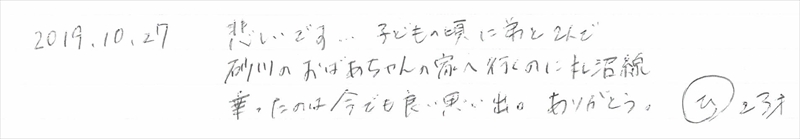 2019.10.27 悲しいです… 子どもの頃に弟と2人で
砂川のおばあちゃんの家へ行くのに札沼線
乗ったのは今でも良い思い出。ありがとう。 ひ 23才